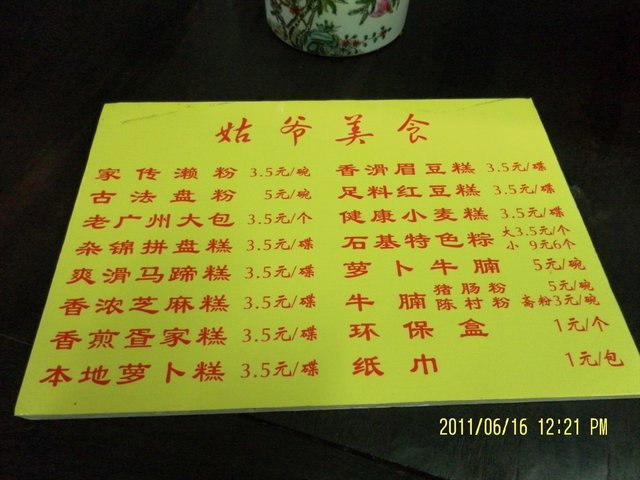 姑爷美食
家传濑粉 3.5元/碗
古法盘粉 5元/碗
老广州大包 3.5元/个
杂锦拼盘糕 3.5元/碟
爽滑马蹄糕 3.5元/碟
香浓芝麻糕 3.5元/碟
香煎蛋家糕 3.5元/碟
本地萝卜糕 3.5元/碟
香滑眉豆糕 3.5元/碟
足料红豆糕 3.5元/碟
健康小麦糕 3.5元/碟
石基特色粽 大3.5元/个
小 9元6个
萝卜牛腩 5元/碗
牛腩 猪肠粉 5元/碗
陈村粉 斋粉3元/碗
环保盒 1元/个
纸巾 1元/包
2011/06/16 12:21 PM